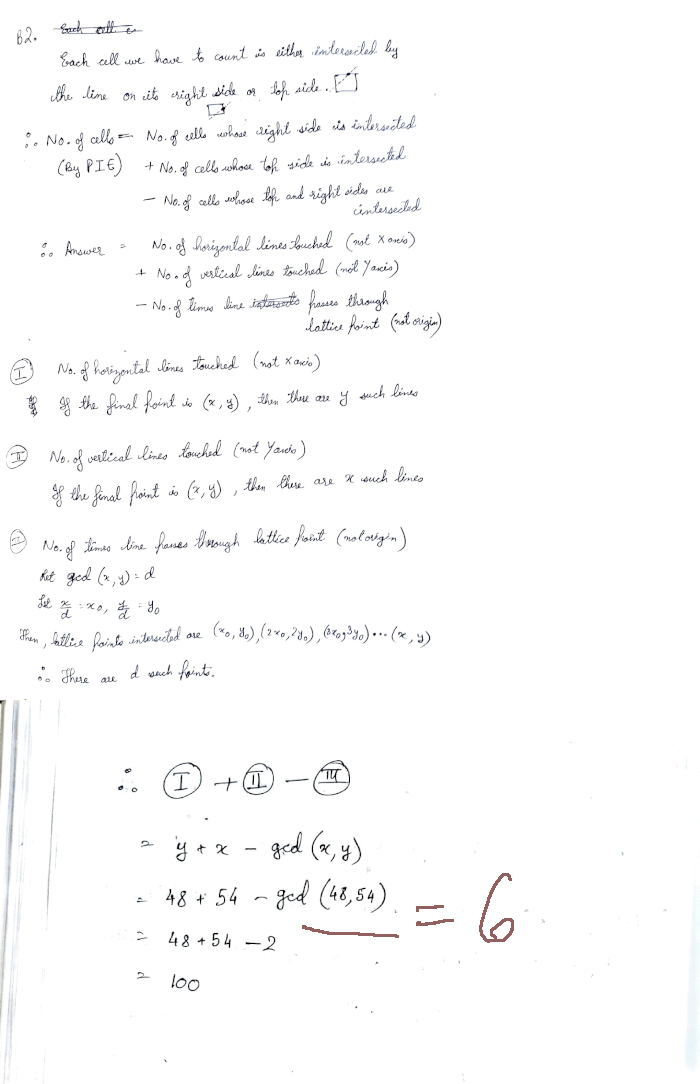 B2. Each cell is
Each cell we have to count is either intersected by
the line on its right side or top side.
∴ No. of cells = No. of cells whose right side is intersected
(By PIE) + No. of cells whose top side is intersected
− No. of cells whose top and right sides are
intersected
∴ Answer = No. of horizontal lines touched (not X axis)
+ No. of vertical lines touched (not Y axis)
− No. of times line intersects passes through
lattice point (not origin)
I No. of horizontal lines touched (not x axis)
If the final point is (x, y), then there are y such lines
II No. of vertical lines touched (not Y axis)
If the final point is (x, y), then there are x such lines
III No. of times line passes through lattice point (not origin)
Let gcd (x, y) = d
Let x/d = x₀, y/d = y₀
Then, lattice points intersected are (x₀, y₀), (2x₀, 2y₀), (3x₀, 3y₀) ... (x, y)
∴ There are d such points.
∴ I + II − III
= y + x − gcd (x, y)
= 48 + 54 − gcd (48, 54) = 6
= 48 + 54 − 2
= 100